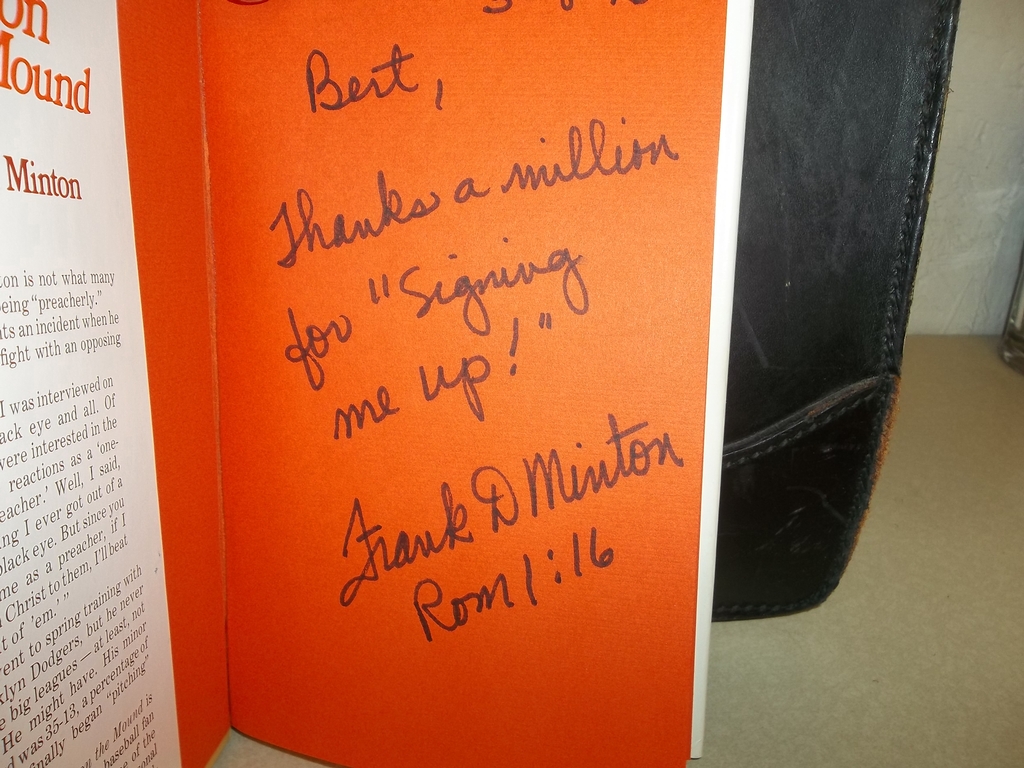 on
Mound
Minton
ton is not what many
being “preacherly.”
an incident when he
fight with an opposing
I was interviewed on
ack eye and all. Of
were interested in the
reactions as a ‘one-
eacher.’ Well, I said,
ing I ever got out of a
black eye. But since you
me as a preacher, if I
Christ to them, I'll beat
t of 'em.’ ”
ent to spring training with
klyn Dodgers, but he never
e big leagues — at least, not
He might have. His minor
d was 35-13, a percentage of
nally began “pitching”
the Mound is
baseball fan
of the
Bert,
Thanks a million
for "Signing
me up!"
Frank D Minton
Rom 1:16